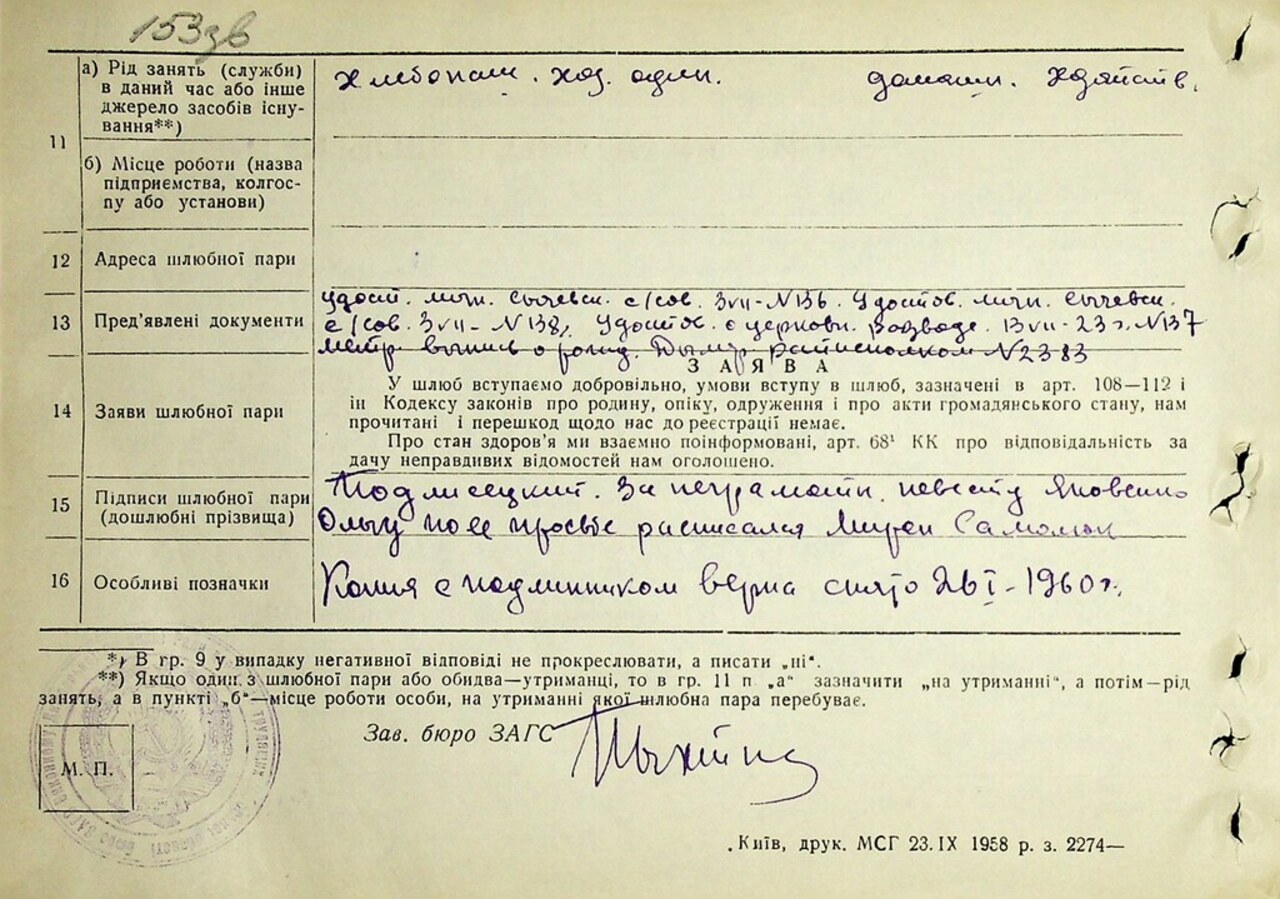 153 зв
11
а) Рід занять (служби)
в даний час або інше
джерело засобів існу-
вання**)
хлебопаш. хоз. один. домашн. хозяйств.
б) Місце роботи (назва
підприємства, колгос-
пу або установи)
12 Адреса шлюбної пари
13 Пред’явлені документи
удост. личн. Сычевск. с/сов. 3 VII - N 136. Удостов. личн. Сычевск.
с/сов. 3 VII - N 138, Удостов. о церковн. разводе. 13 VII - 23 г. N 137
метр. выпись о рожд. Дымер. райисполком N 2383
З А Я В А
14 Заяви шлюбної пари
У шлюб вступаємо добровільно, умови вступу в шлюб, зазначені в арт. 108—112 і
ін Кодексу законів про родину, опіку, одруження і про акти громадянського стану, нам
прочитані і перешкод щодо нас до реєстрації немає.
Про стан здоров’я ми взаємно поінформовані, арт. 68¹ КК про відповідальність за
дачу неправдивих відомостей нам оголошено.
15 Підписи шлюбної пари
(дошлюбні прізвища)
Подлисецкий. За неграмотн. невесту Яковенко
Ольгу по ее просьбе расписался Мирон Самолюк
16 Особливі позначки
Копия с подлинником верна снято 26 I - 1960 г.
*) В гр. 9 у випадку негативної відповіді не прокреслювати, а писати „ні“.
**) Якщо один з шлюбної пари або обидва—утриманці, то в гр. 11 п „а“ зазначити „на утриманні“, а потім—рід
занять, а в пункті „б“—місце роботи особи, на утриманні якої шлюбна пара перебуває.
Зав. бюро ЗАГС
М. П.
Київ, друк. МСГ 23.IX 1958 р. з. 2274—